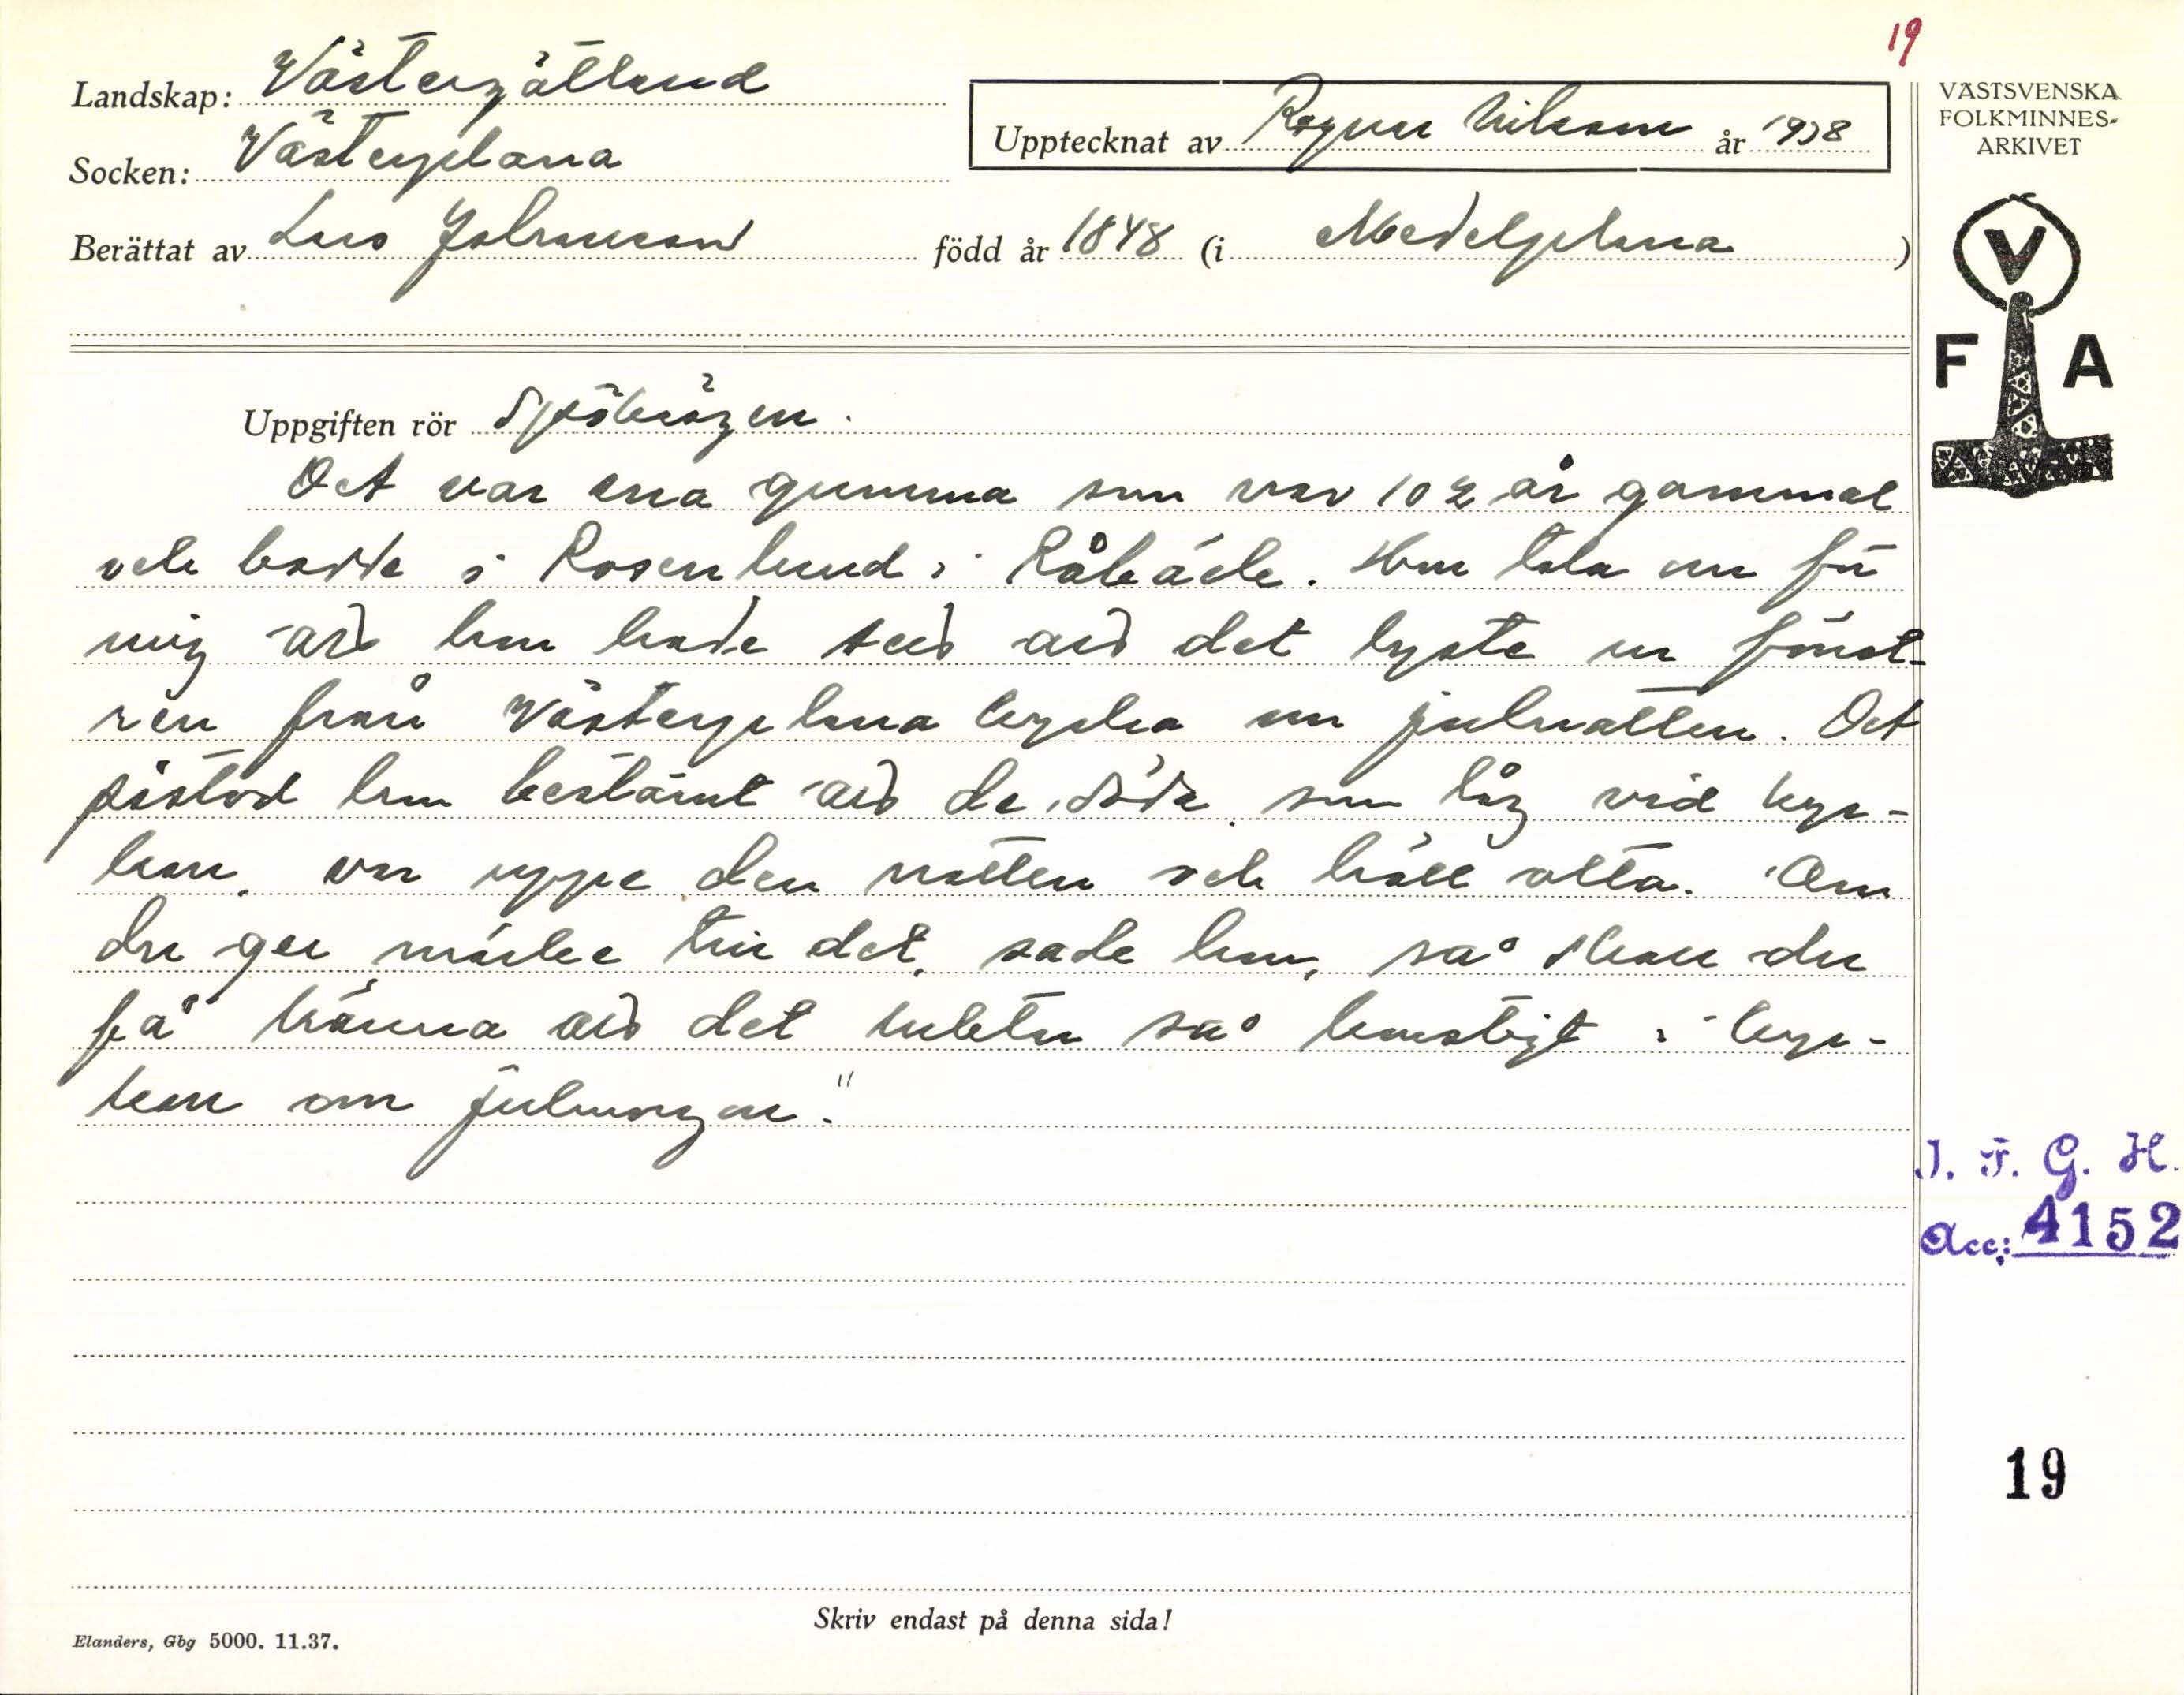 19
Landskap: Västergötland
Socken: Västerplana
Berättat av Lars Johansson född år 1848 (i Medelplana)
Upptecknat av Ragnar Nilsson år 1938
VÄSTSVENSKA
FOLKMINNES-
ARKIVET
V
F A
Uppgiften rör Spöktron.
Det var ena gumma som var 102 år gammal
och bodde i Rosenlund i Råbäck. Hon tala om för
mig ad hon hade sed ad det lyste ur fönst-
ren från Västerplana kyrka om julnatten. Det
påstod hon bestämt ad de döda som låg vid kyr-
kan, var uppe den natten och höll otta. "Om
du ger märke till det, sade hon, så skall du
få känna ad det luktar så konstigt i kyr-
kan om julmorgon."
I. F. G. H.
Acc: 4152
19
Skriv endast på denna sida!
Elanders, Gbg 5000. 11.37.